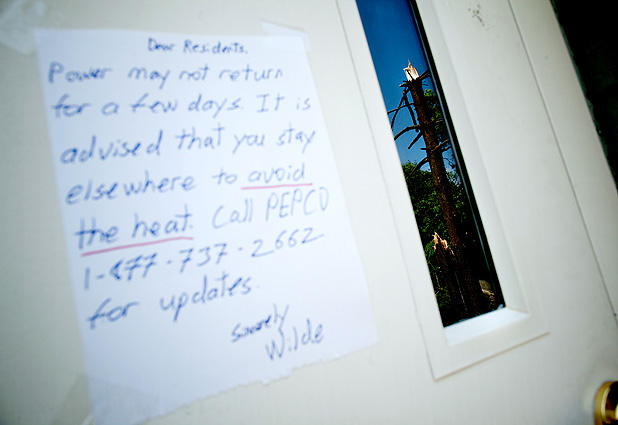 Dear Residents,
Power may not return
for a few days. It is
advised that you stay
elsewhere to avoid
the heat. Call PEPCO
1-877-737-2662
for updates.
Sincerely
Wilde